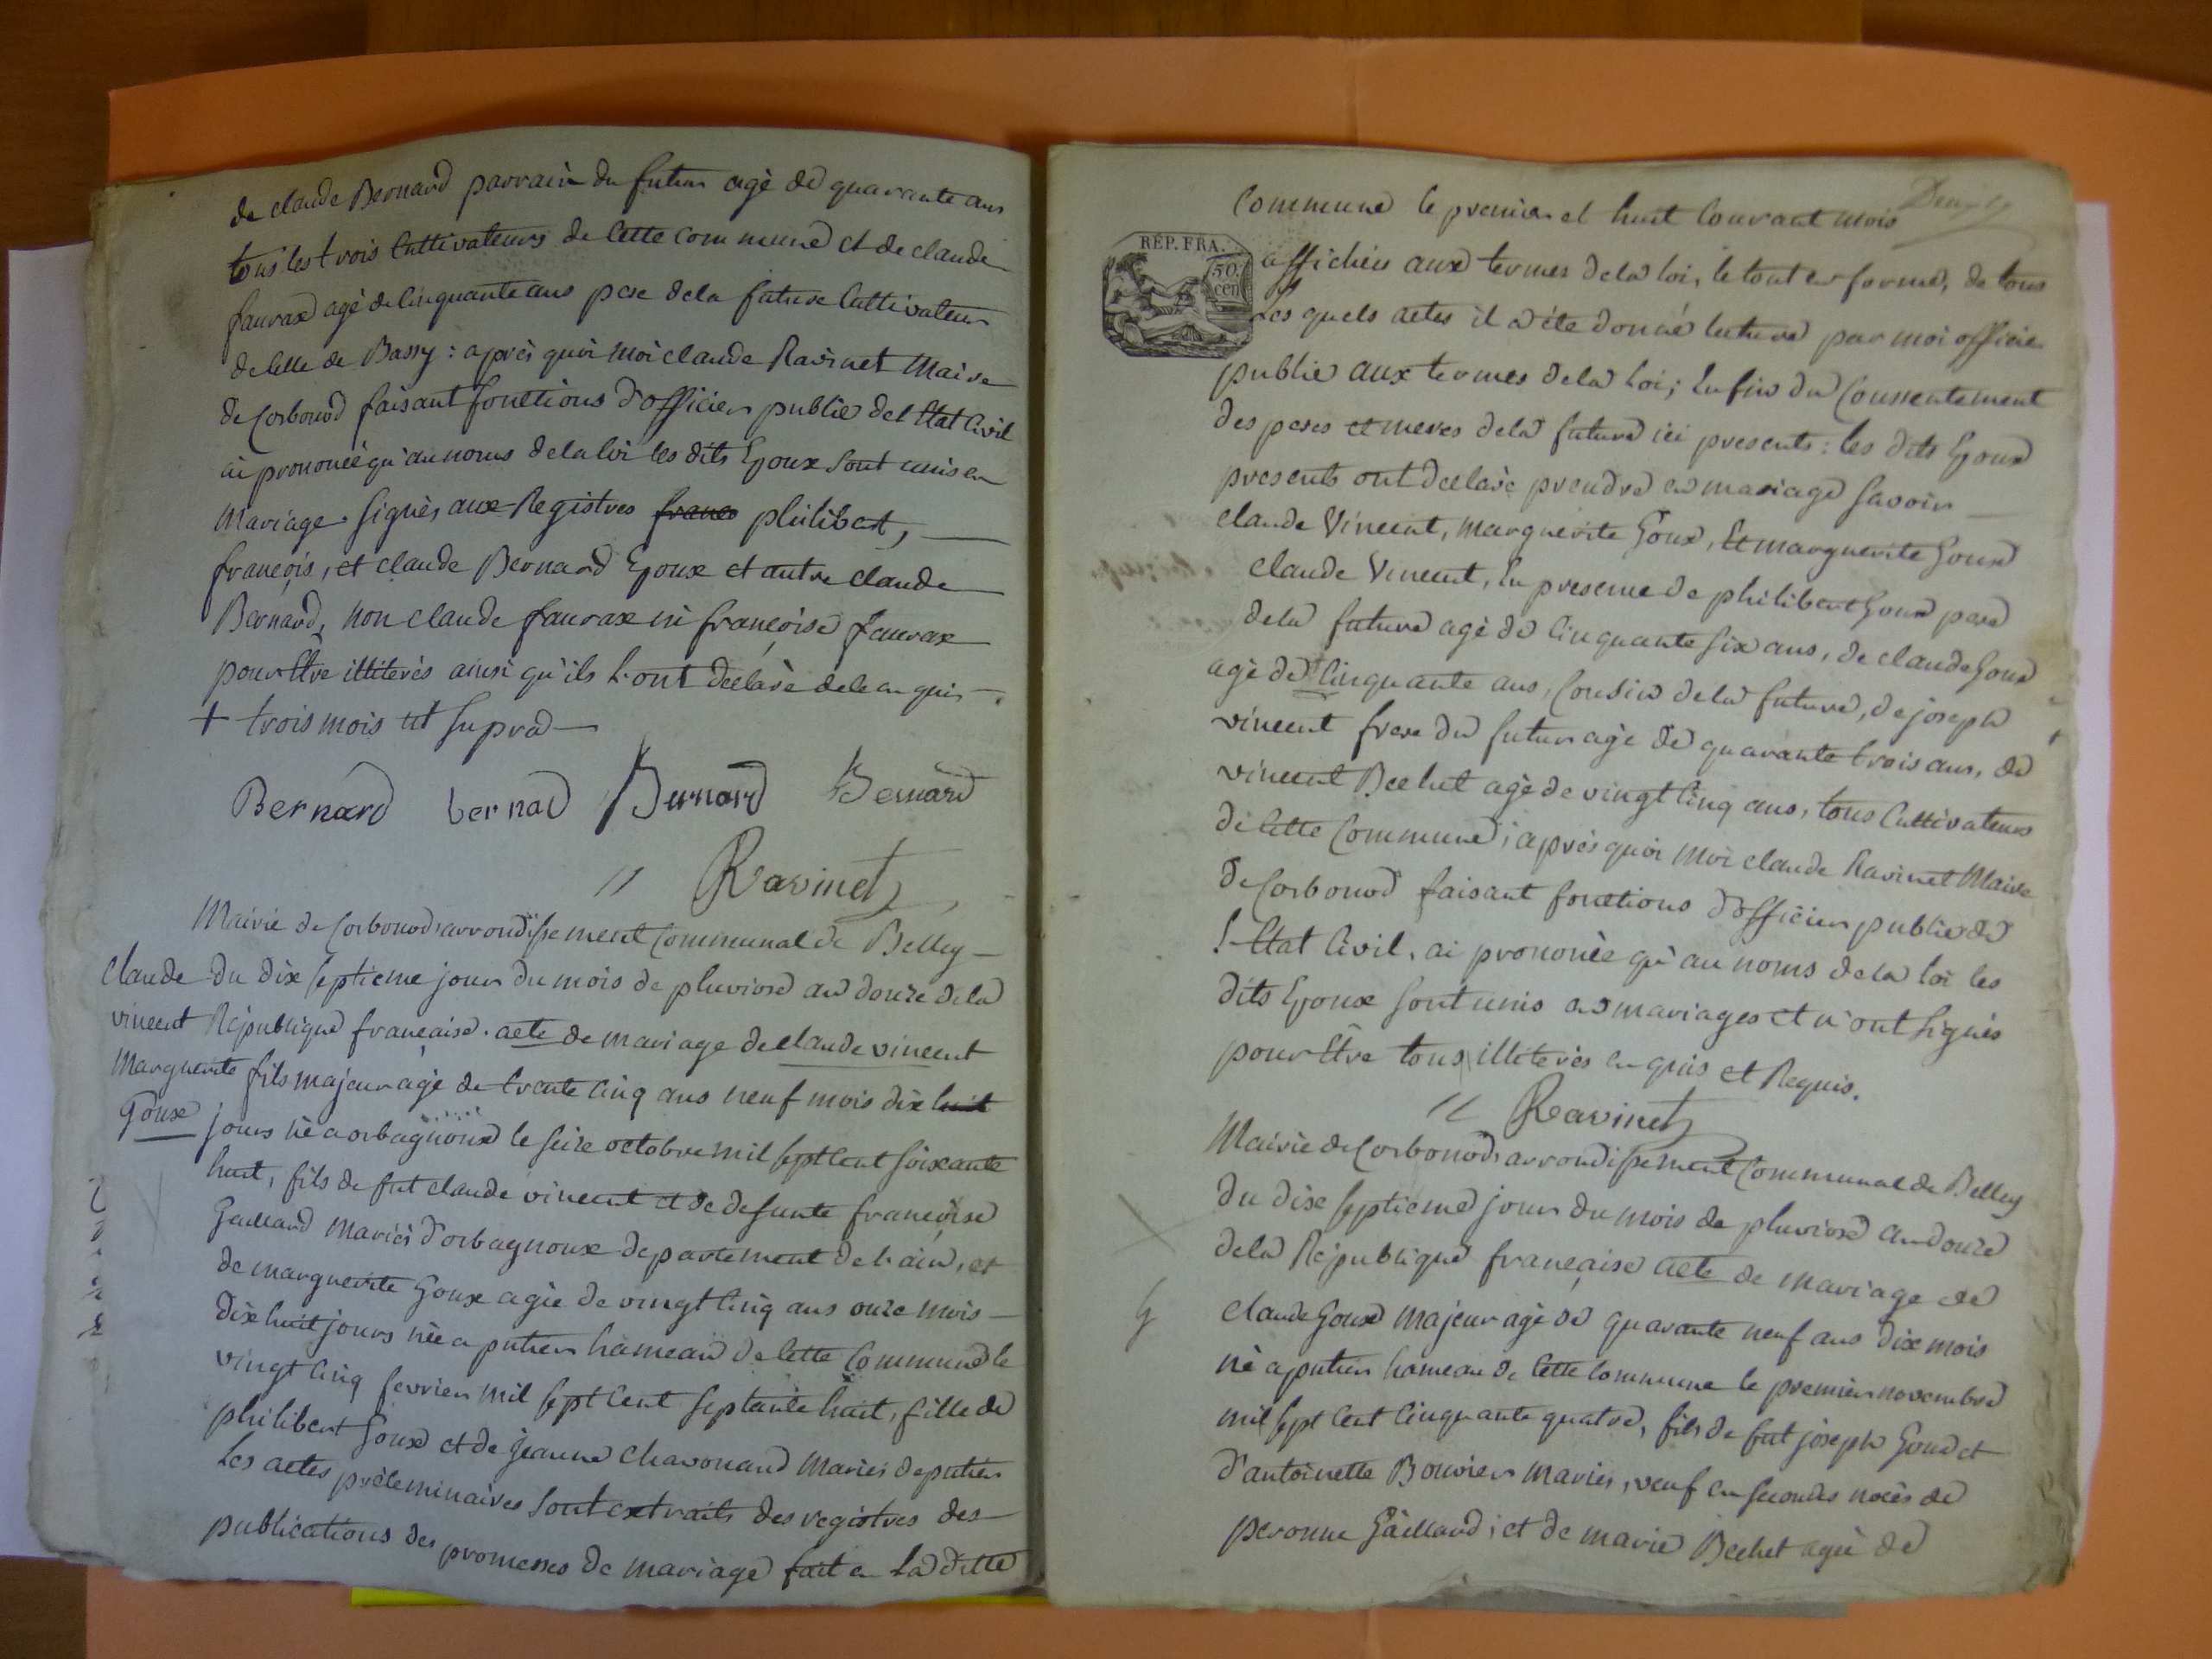 de claude Bernard parrain du futur agè de quarante ans
tous les trois Cultivateurs de Cette commune et de claude
fauvax agè de Cinquante ans pere dela future Cultivateur
de Celle de Bassy : après quoi moi claude Ravinet Maire
de Corbonod faisant fonctions d'officier public del Etat Civil
ai prononcé qu'au noms dela loi les dits Epoux Sont unis en
Mariage. Signès aux Registres franco philibert,
françois, et claude Bernard Epoux et autre claude
Bernard, non claude fauvax ni françoise fauvax
pour Etre illiterès ainsi qu'ils h'ont declarè dele en quis
+ trois mois ut Supra
Bernard bernad Bernard Bernard
Ravinet
Mairie de Corbonod, arrondissement Communal de Belley
claude vincent Marguerite Goux
du dix septieme jour du mois de pluviose an douze dela
Republique française. acte de mariage de claude vincent
fils majeur agè de trente cinq ans neuf mois dix huit
jours nè a orbagnoux le seize octobre mil sept Cent soixante
huit, fils de fut claude vincent et de defunte françoise
Gaillard mariès d'orbagnoux departement de h'ain, et
de marguerite Goux agèe de vingt Cinq ans onze mois
dix huit jours nèe a puthier hameau de Cette Commune le
vingt Cinq fevrier mil sept Cent septante huit, fille de
philibert Goux et de Jeanne Chavonand Mariès de puthier
Les actes prèleminaires sont extraits des registres des
publications des promesses de mariage fait en La ditte
Commune le premier et huit Courant mois
RÉP. FRA.
50. cen
affichèes aux termes dela loi, le tout en forme, de tous
Les quels actes il a èté donné lecture par moi officier
public aux termes dela Loi; Enfin du Conssentement
des peres et meres dela future ici presents : les dits Epoux
presents ont declarè prendre en mariage savoir
claude Vincent, marguerite Goux, Et marguerite Goux
claude Vincent, En presence de philibert Goux pere
dela future agè de Cinquante six ans, de claude Goux
agè de Cinquante ans, Cousin dela future, de joseph
vincent frere du futur agè de quarante trois ans, de
vincent Bechet agè de vingt Cinq ans, tous Cultivateurs
de Cette Commune; après quoi moi claude Ravinet Maire
de Corbonod faisant fonctions d'officier public de
l'Etat Civil, ai prononcè qu'au noms dela loi les
dits Epoux sont unis en mariages et n'ont signès
pour Etre tous illiterès en quis et Requis.
Ravinet
Mairie de Corbonod, arrondissement Communal de Belley
du dix septieme jour du mois de pluviose an douze
dela Republique française acte de mariage de
claude Goux majeur agè de quarante neuf ans dix mois
nè a puthier hameau de Cette Commune le premier novembre
mil sept Cent Cinquante quatre, fils de fut joseph Goux et
d'antoinette Bouvier mariès, veuf en secondes noces de
peronne Gaillard; et de marie Bechet agèe de